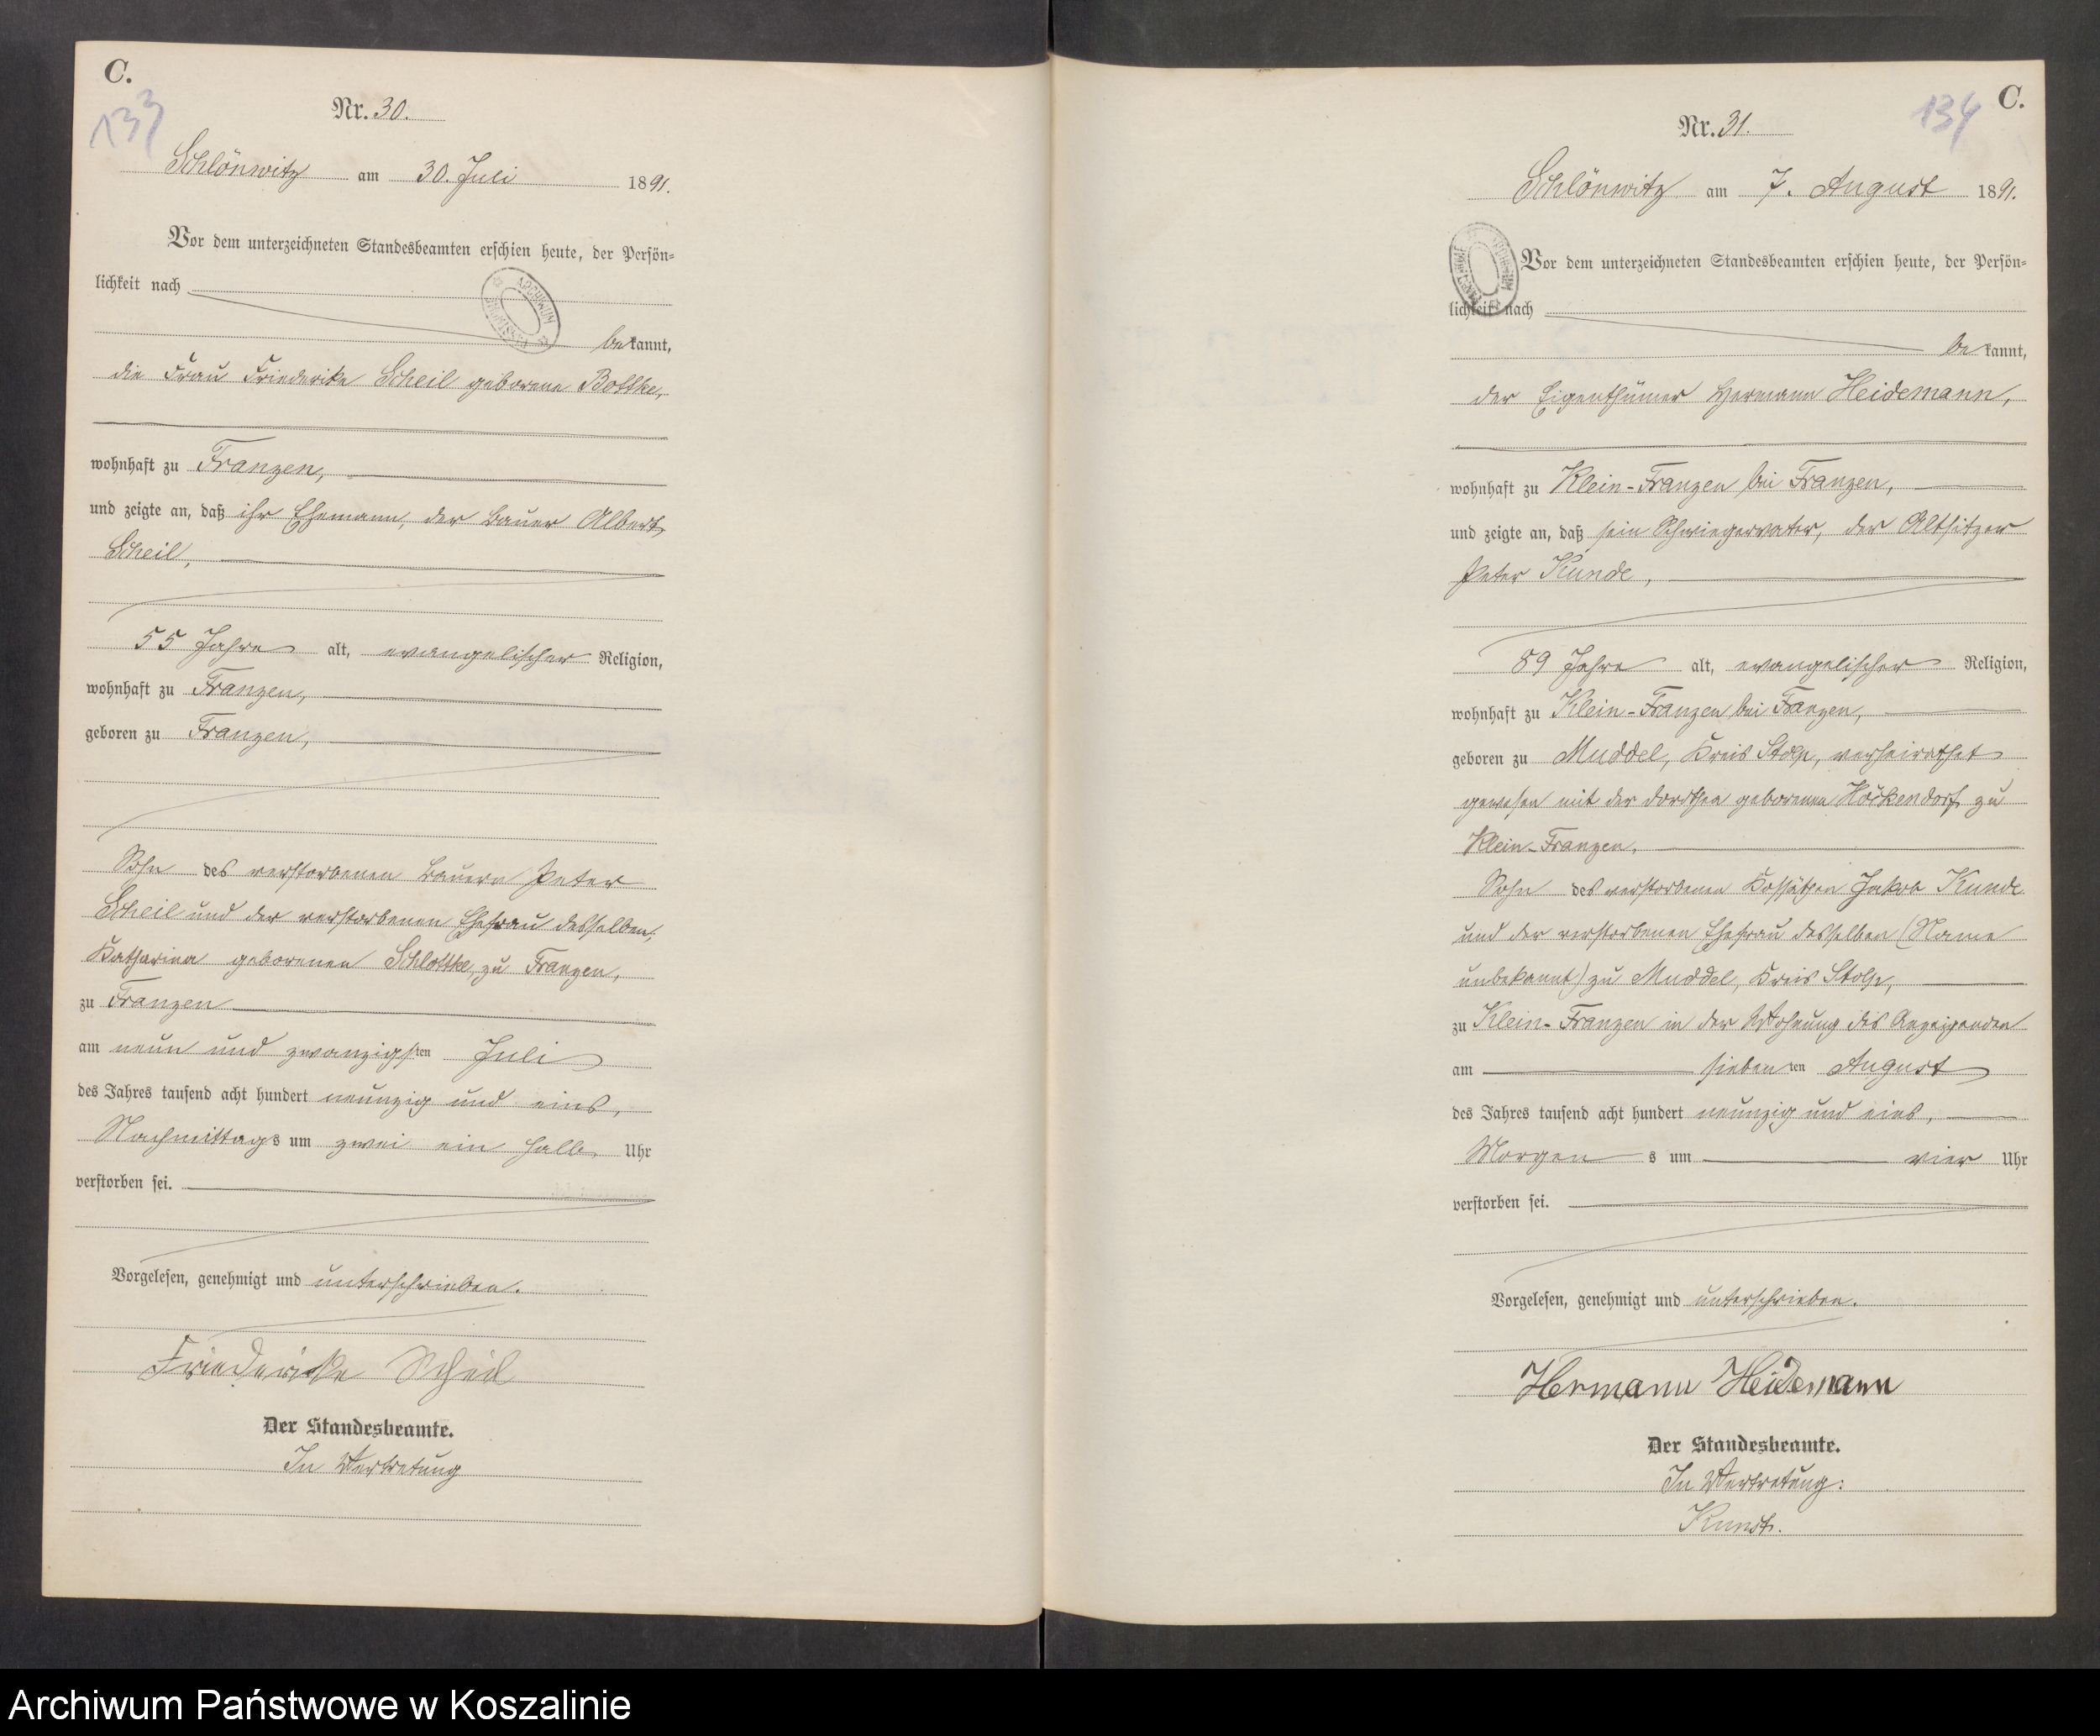 C.
133
Nr. 30.
Schlönwitz am 30. Juli 1891.
Vor dem unterzeichneten Standesbeamten erschien heute, der Persön=
lichkeit nach
bekannt,
die Frau Friederike Scheil geborene Bottke,
wohnhaft zu Franzen,
und zeigte an, daß ihr Ehemann, der Bauer Albert
Scheil,
55 Jahre alt, evangelischer Religion,
wohnhaft zu Franzen,
geboren zu Franzen,
Sohn des verstorbenen Bauern Peter
Scheil und der verstorbenen Ehefrau desselben,
Katharina geborenen Schlottke, zu Franzen,
zu Franzen
am neun und zwanzigsten Juli
des Jahres tausend acht hundert neunzig und eins,
Nachmittags um zwei ein halb Uhr
verstorben sei.
Vorgelesen, genehmigt und unterschrieben.
Friederike Scheil
Der Standesbeamte.
In Vertretung
C.
134
Nr. 31.
Schlönwitz am 7. August 1891.
ARCHIWUM
Vor dem unterzeichneten Standesbeamten erschien heute, der Persön=
lichkeit nach
bekannt,
der Eigenthümer Hermann Heidemann,
wohnhaft zu Klein-Franzen bei Franzen,
und zeigte an, daß sein Schwiegervater, der Altsitzer
Peter Kunde,
89 Jahre alt, evangelischer Religion,
wohnhaft zu Klein-Franzen bei Franzen,
geboren zu Muddel, Kreis Stolp, verheirathet
gewesen mit der dorthen geborenen Höckendorf zu
Klein-Franzen,
Sohn des verstorbenen Kossäthen Jakob Kunde
und der verstorbenen Ehefrau desselben (Name
unbekannt) zu Muddel, Kreis Stolp,
zu Klein-Franzen in der Wohnung des Anzeigenden
am siebenten August
des Jahres tausend acht hundert neunzig und eins,
Morgens um vier Uhr
verstorben sei.
Vorgelesen, genehmigt und unterschrieben.
Hermann Heidemann
Der Standesbeamte.
In Vertretung:
Kunst.
Archiwum Państwowe w Koszalinie